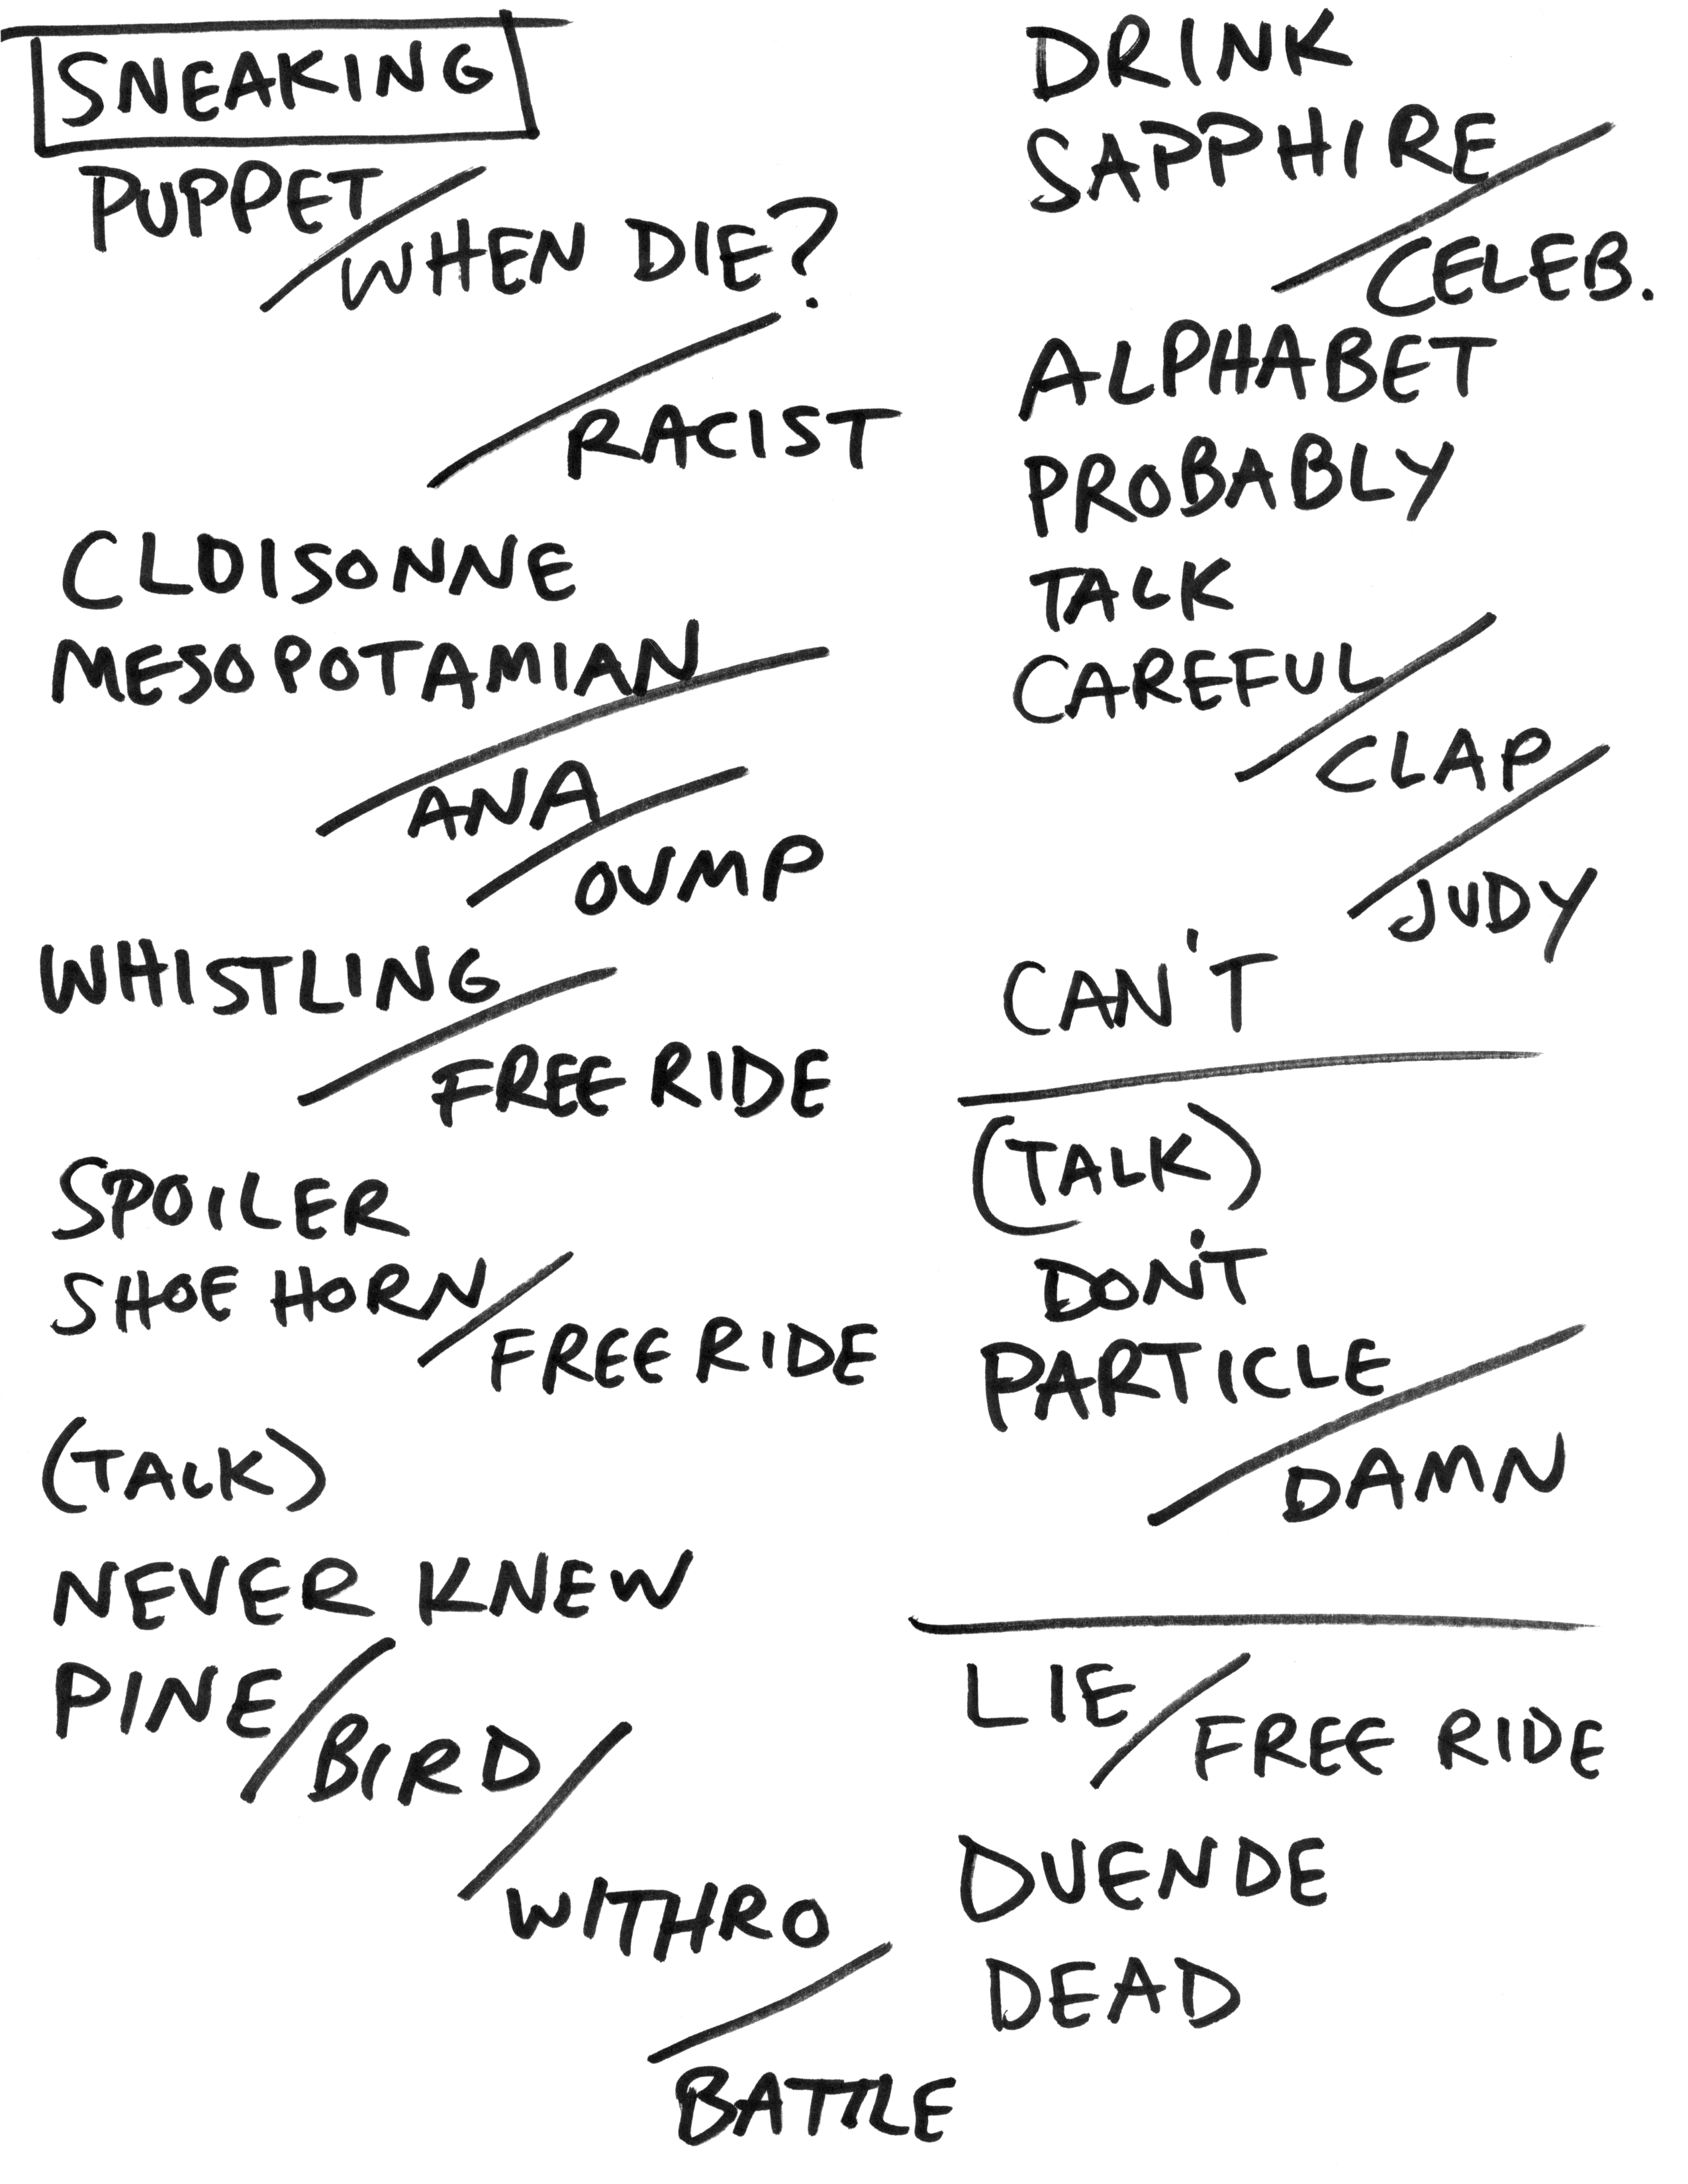 SNEAKING
PUPPET
WHEN DIE?
RACIST
CLOISONNE
MESOPOTAMIAN
ANA
OVMP
WHISTLING
FREE RIDE
SPOILER
SHOE HORN
FREE RIDE
(TALK)
NEVER KNEW
PINE
BIRD
WITHRO
BATTLE
DRINK
SAPPHIRE
CELEB.
ALPHABET
PROBABLY
TALK
CAREFUL
CLAP
JUDY
CAN'T
(TALK)
DON'T
PARTICLE
DAMN
LIE
FREE RIDE
DUENDE
DEAD